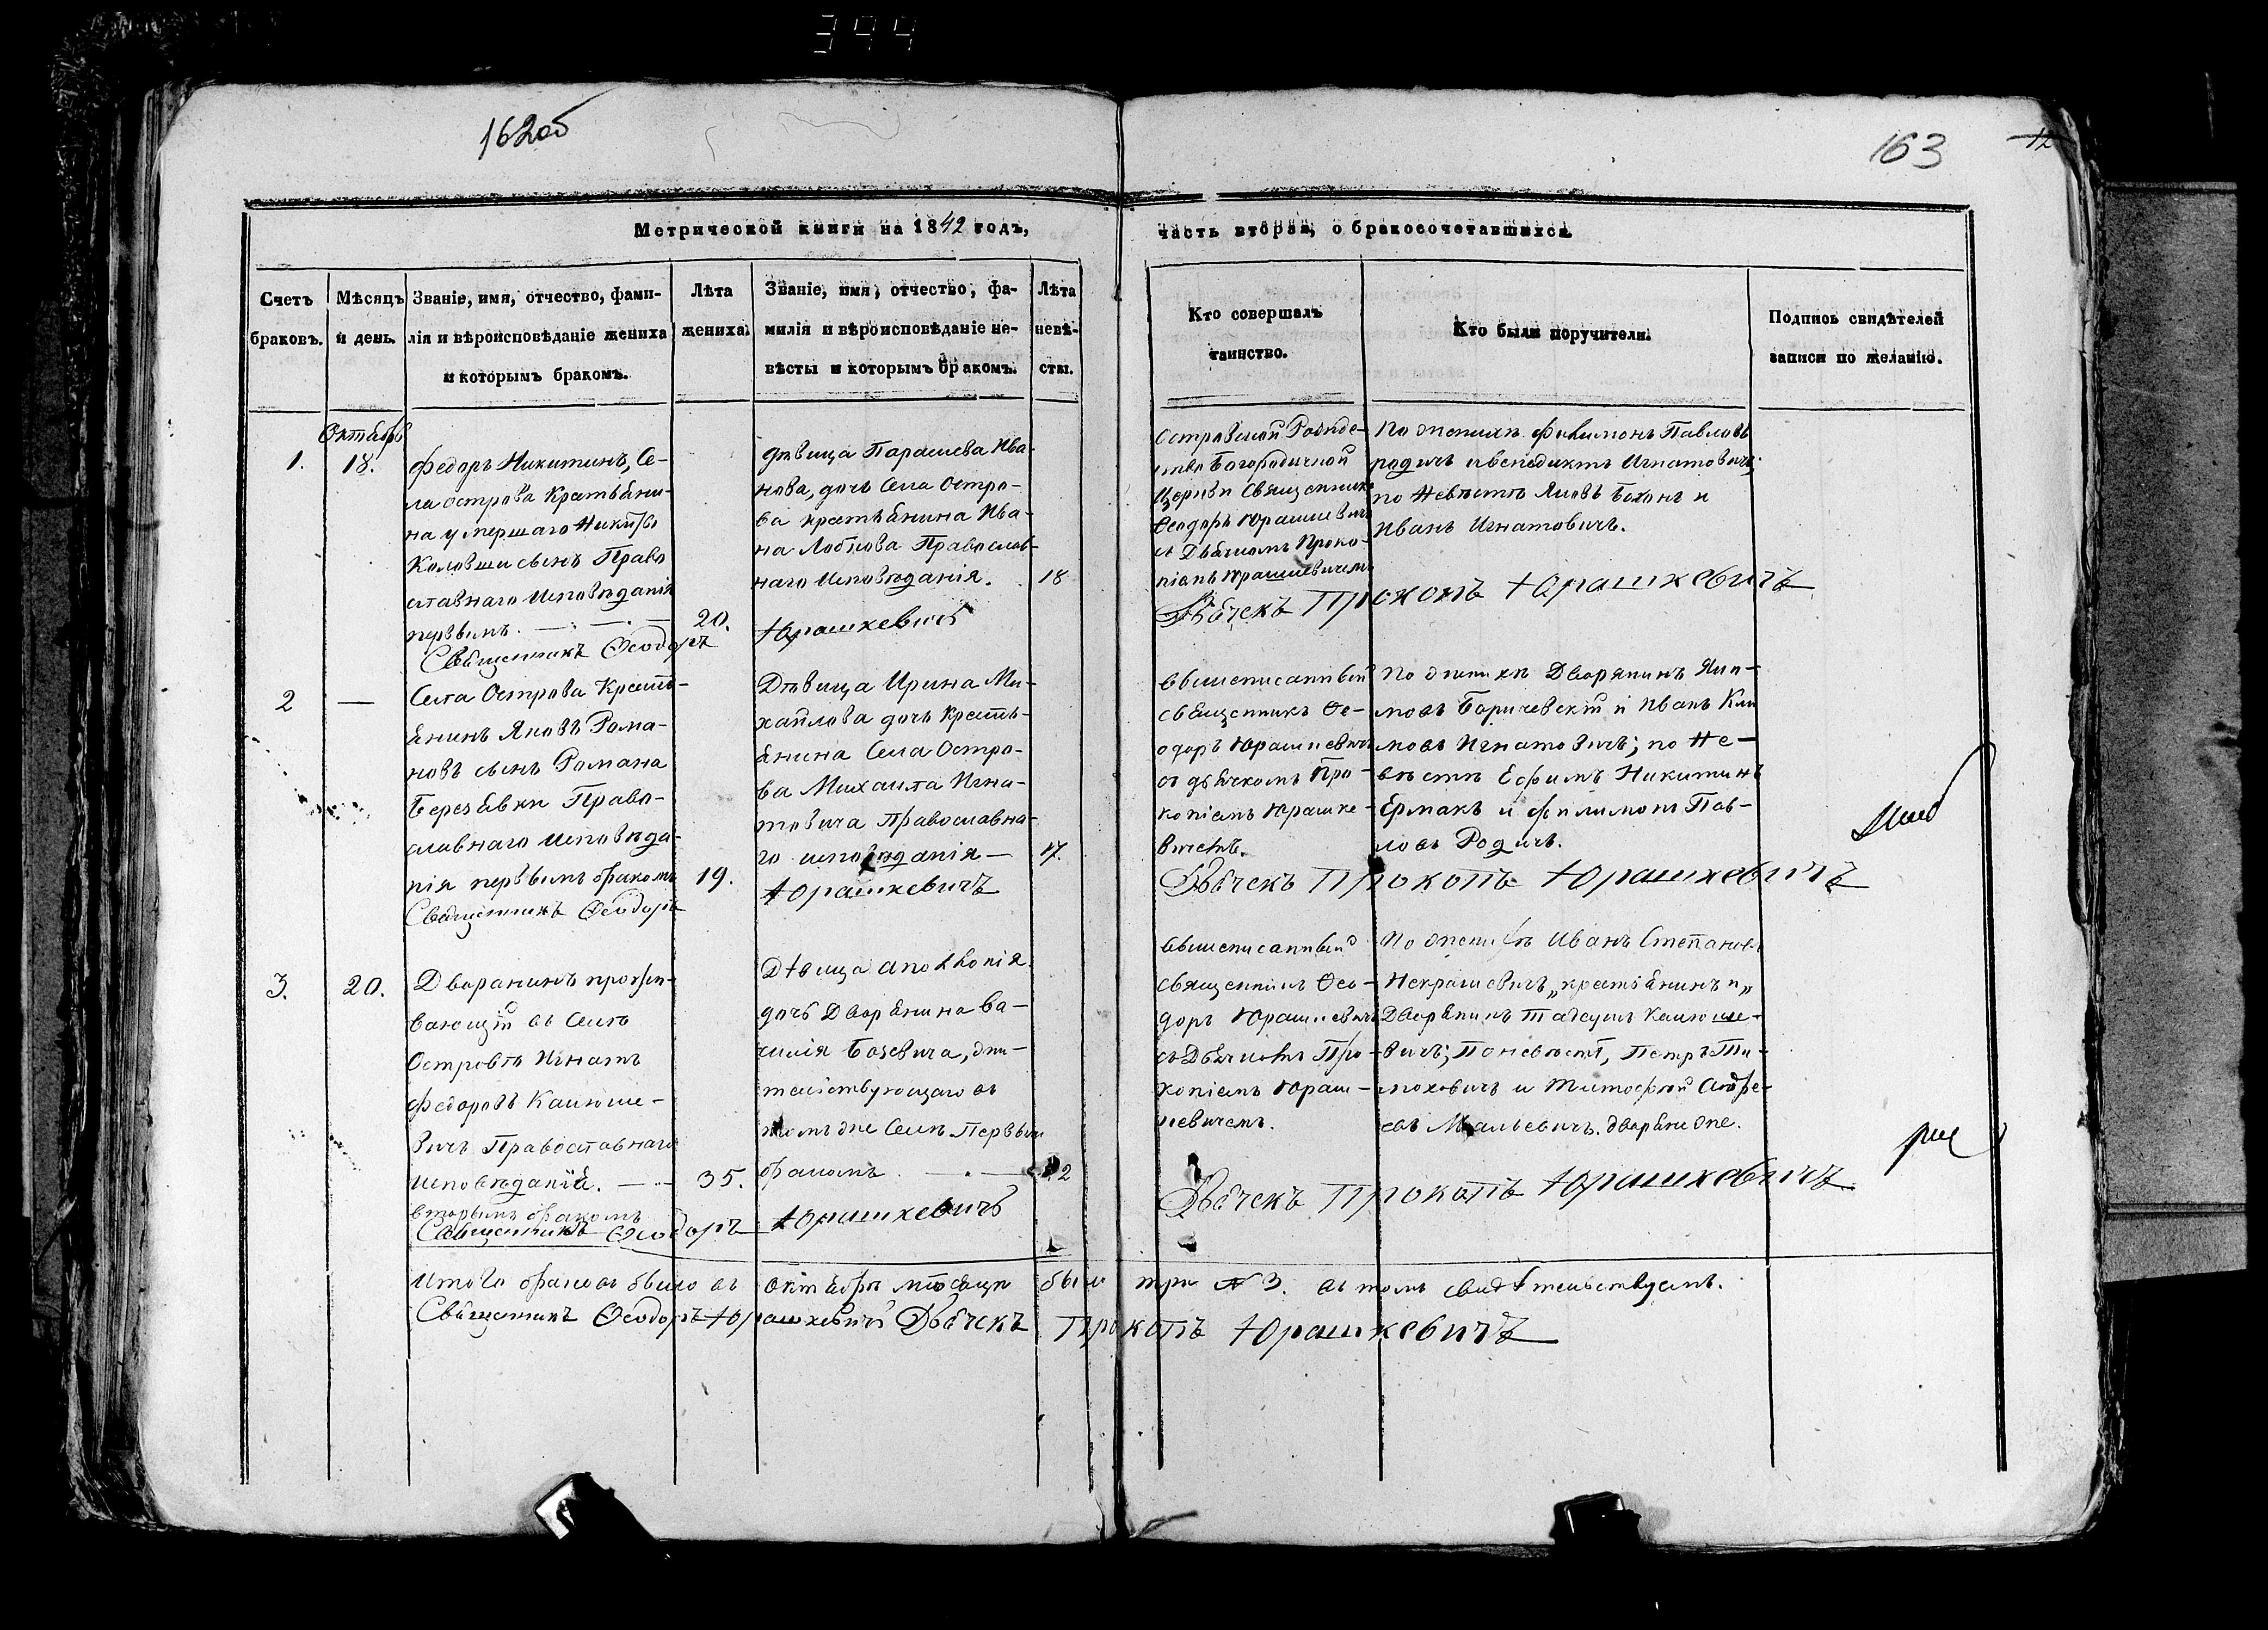 344
162об
163
12
Метрической книги на 1842 годъ,
часть вторая, о бракосочетавшихся
Счетъ браковъ.
Мѣсяцъ и день.
Званіе, имя, отчество, фами-
лія и вѣроисповѣданіе жениха
и которымъ бракомъ.
Лѣта
жениха.
Званіе, имя, отчество, фа-
милія и вѣроисповѣданіе не-
вѣсты и которымъ бракомъ.
Лѣта
невѣ-
сты.
Кто совершалъ
таинство.
Кто были поручители.
Подпись свидѣтелей
записи по желанію.
1.
Октября
18.
Федоръ Никитинъ, Се-
ла Острова Крестьяни-
на умершаго Никиты
сынъ Право
славнаго Исповѣданія
первымъ.
20.
Священникъ Ѳеодоръ
дѣвица Параскева Ива-
нова, дочь Села Остро-
ва крестьянина Ива-
на Православ-
наго Исповѣданія.
18
Юрашкевичъ
Островской Рожде-
ства Богородичной
Церкви Священникъ
Ѳеодоръ Юрашкевичъ
съ Дьячкомъ Проко-
піемъ Юрашкевичемъ
По женихѣ Филимонъ Павловъ
родичъ и Венедиктъ Игнатовичъ;
по Невѣстѣ Яковъ и
Иванъ Игнатовичъ.
Дьячекъ Прокопъ Юрашкевичъ
2
—
Села Острова Кресть-
янинъ Яковъ Рома-
новъ сынъ Романа
Право-
славнаго Исповѣда-
нія первымъ бракомъ
19.
Священникъ Ѳеодоръ
Дѣвица Ирина Ми-
хайлова дочь Кресть-
янина Села Остро-
ва Михаила Игна-
товича Православна-
го исповѣданія —
17.
Юрашкевичъ
Вышеписанный
священникъ Ѳе-
одоръ Юрашкевичъ
съ дьячкомъ Про-
копіемъ Юрашке-
вичемъ.
По женихѣ Дворянинъ Яки-
мовъ Боричевскій и Иванъ Кли
мовъ Игнатовичъ; по Не-
вѣстѣ Ефимъ Никитинъ
Ермакъ и Филимонъ Пав-
ловъ Родичъ.
Дьячекъ Прокопъ Юрашкевичъ
3.
20.
Дворянинъ прожи-
вающій въ Селѣ
Островѣ Игнатъ
Федоровъ
вичъ Православнаго
исповѣданія.
35.
вторымъ бракомъ
Священникъ Ѳеодоръ
Дѣвица Аполлонія
дочь Дворянина Ва-
силія жи-
тельствующаго въ
томъ же Селѣ Первымъ
бракомъ
Юрашкевичъ
Вышеписанный
священникъ Ѳео-
доръ Юрашкевичъ
съ Дьячкомъ Про-
копіемъ Юраш-
кевичемъ.
По женихѣ Иванъ Степановъ
Некрашевичъ „крестьянинъ и„
Дворянинъ
вичъ; По невѣстѣ, Петръ Ти-
моховичъ и Тимофей Андре-
евъ дворяне.
Дьячекъ Прокопъ Юрашкевичъ
Итого браковъ было въ октябрѣ мѣсяцѣ было три № 3. въ томъ свидѣтельствуемъ.
Священникъ Ѳеодоръ Юрашкевичъ Дьячекъ Прокопъ Юрашкевичъ